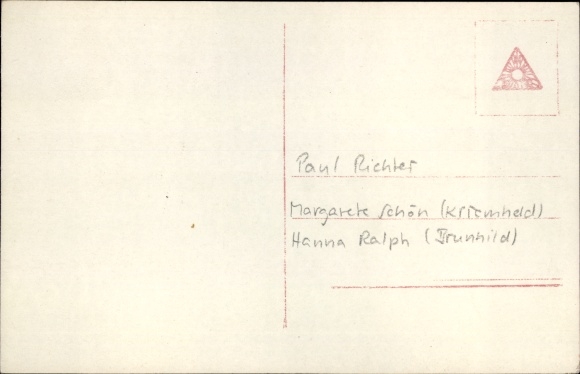 Paul Richter
Margarete Schön (Kriemheld)
Hanna Ralph (Brunhild)